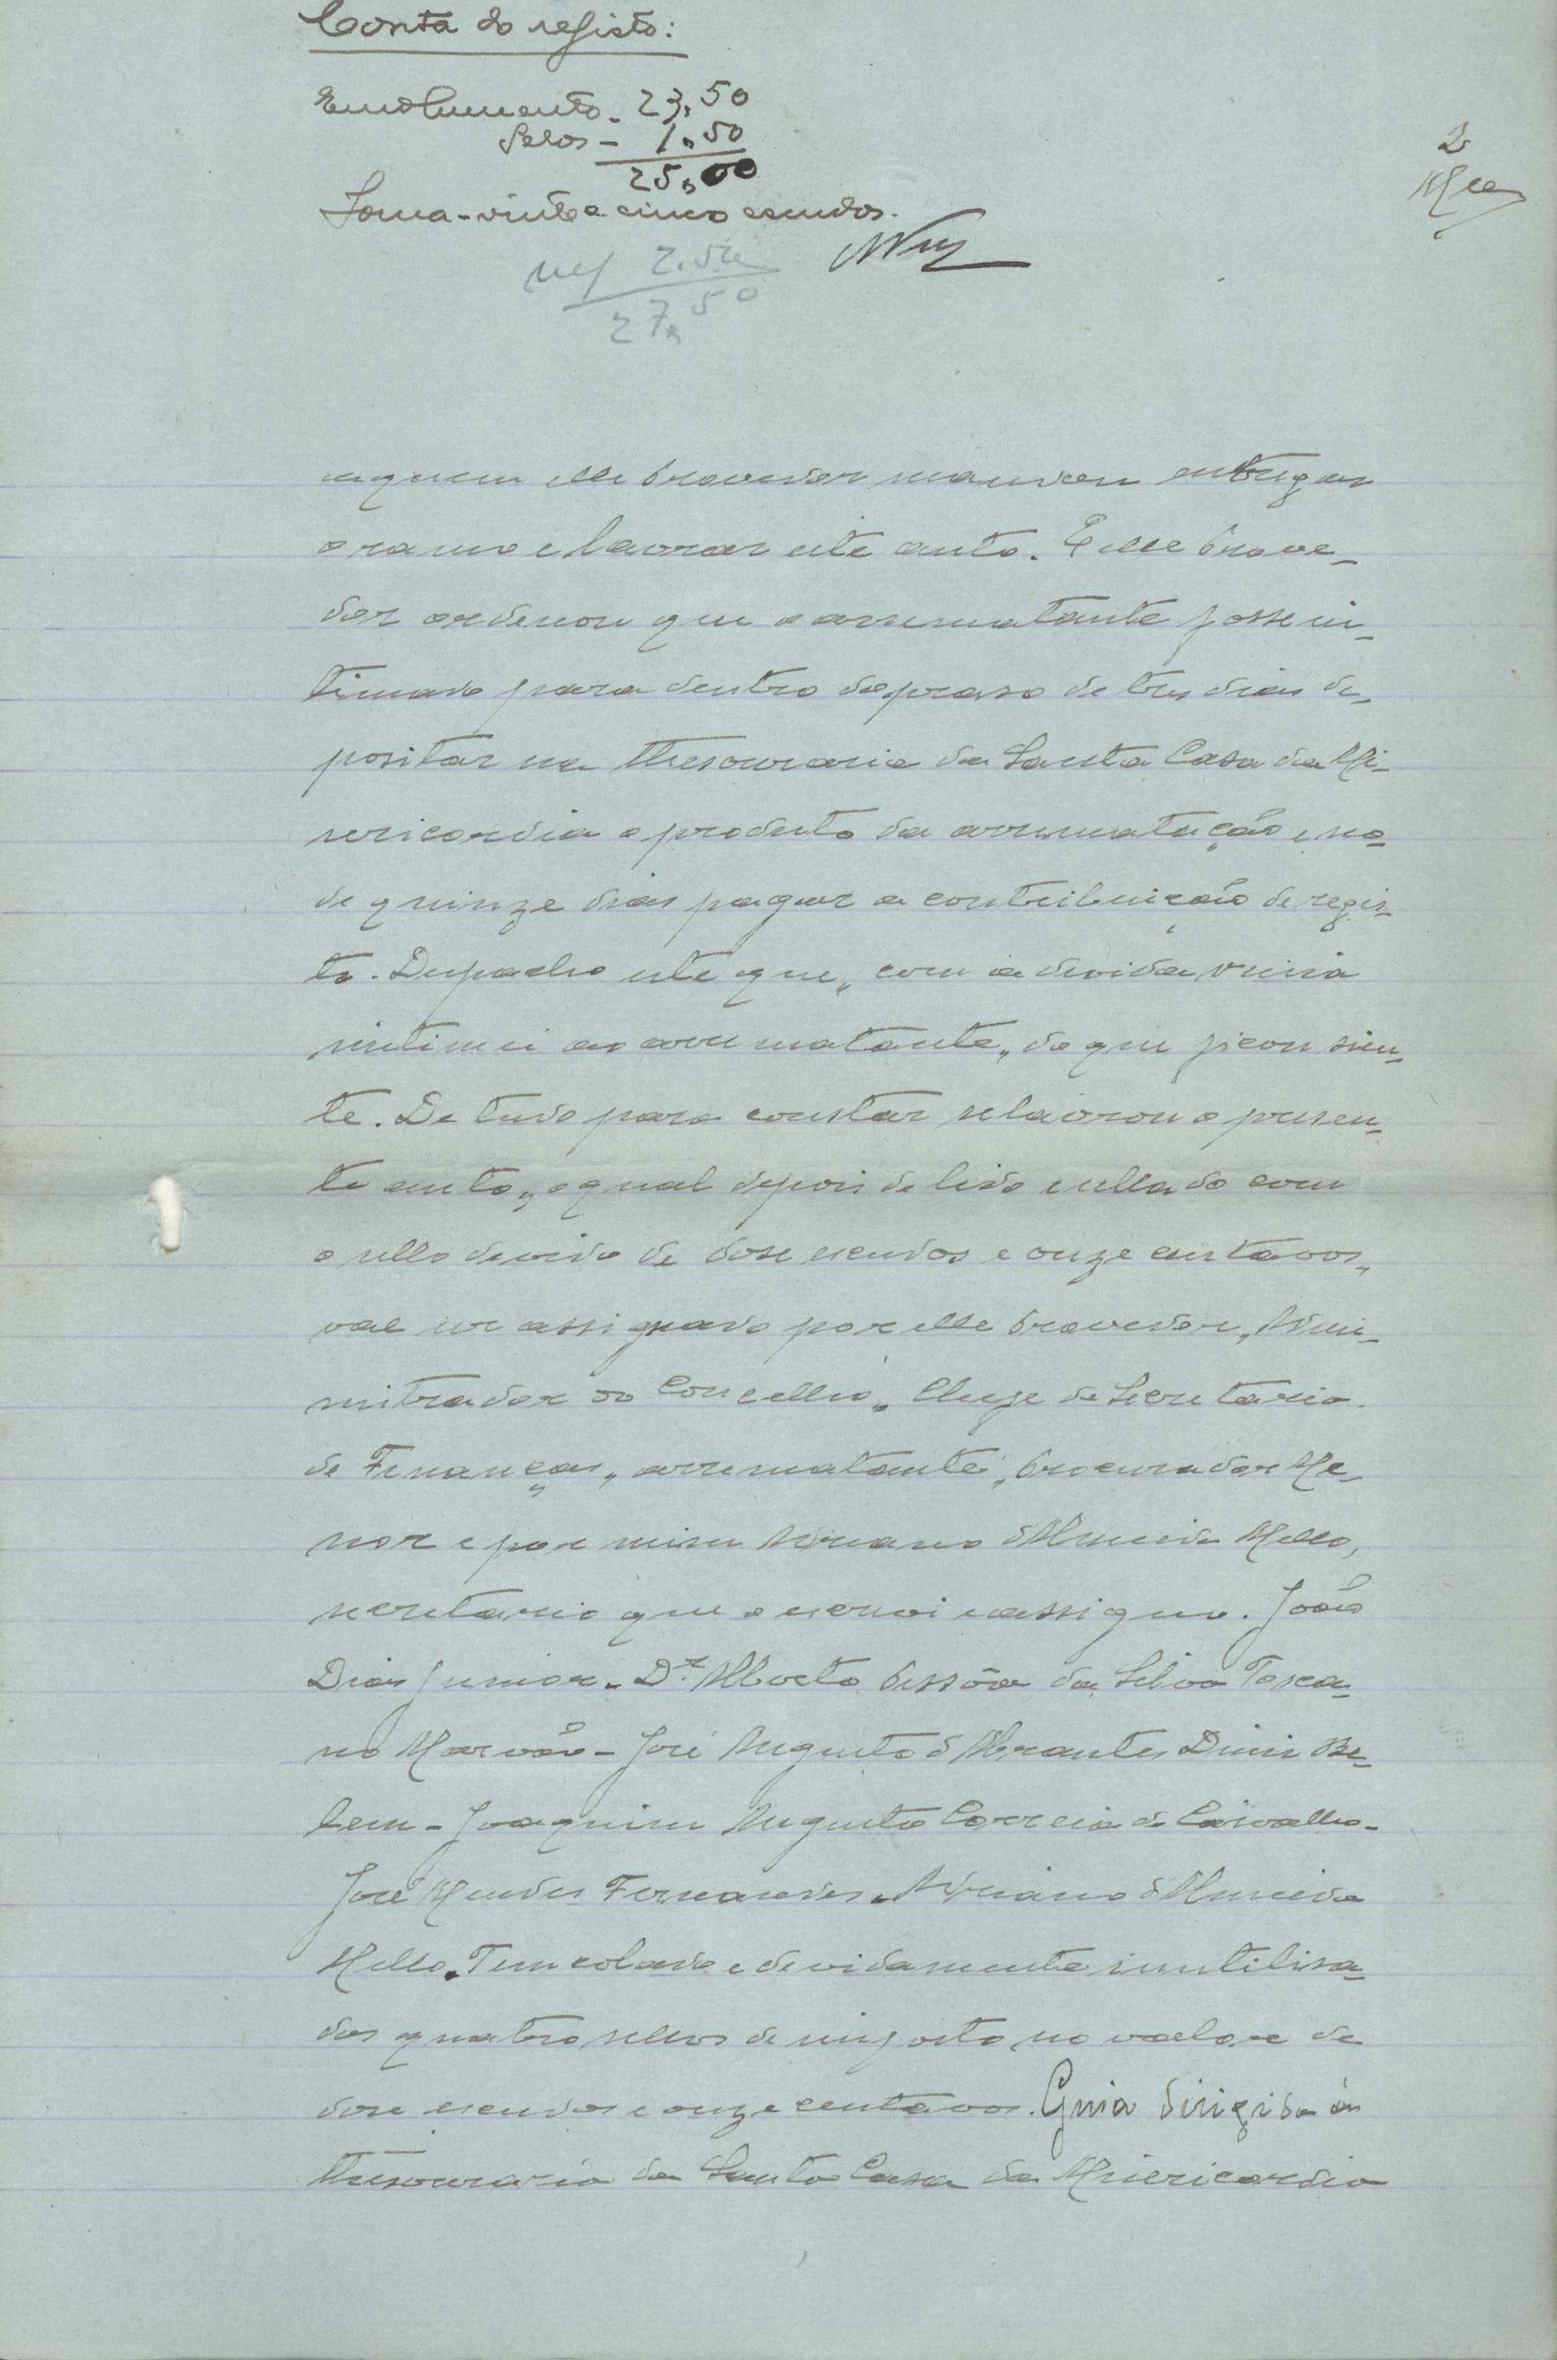 Conta do registo:
Emolumento - 23,50
Selos - 1,50
25,00
Soma - vinte e cinco escudos.
2
2.50
27,50
a quem elle Provedor mandou entregar
o ramo e lavrar este auto. E elle Prove-
dor ordenou que o arrematante fosse in-
timado para dentro do praso de tres dias de-
positar na thesouraria da Santa Casa da Mi-
sericordia o producto da arrematação e no
de quinze dias pagar a contribuição de regis-
to. Despacho este que, com a devida venia
intimei ao arrematante, do que ficou scien-
te. De tudo para constar se lavrou o presen-
te auto, o qual depois de lido e sellado com
o sello devido de dose escudos e onze centavos,
vae ser assignado por elle Provedor, Admi-
nistrador do Concelho, Chefe da Secretaria
de Finanças, arrematante, Procurador Me-
nor e por mim Adriano d'Almeida Mello,
secretario que o escrevi e assigno. João
Dias Junior - Dr. Alberto Pessôa da Silva Tosca-
no Marvão - José Augusto d'Abrantes Diniz Be-
lem - Joaquim Augusto Correia de Carvalho -
José Mendes Fernandes - Adriano d'Almeida
Mello. Tem colado e devidamente inutilisa-
dos quatro sellos de imposto no valor de
dose escudos e onze centavos. Guia dirigida á
thesouraria da Santa Casa da Misericordia